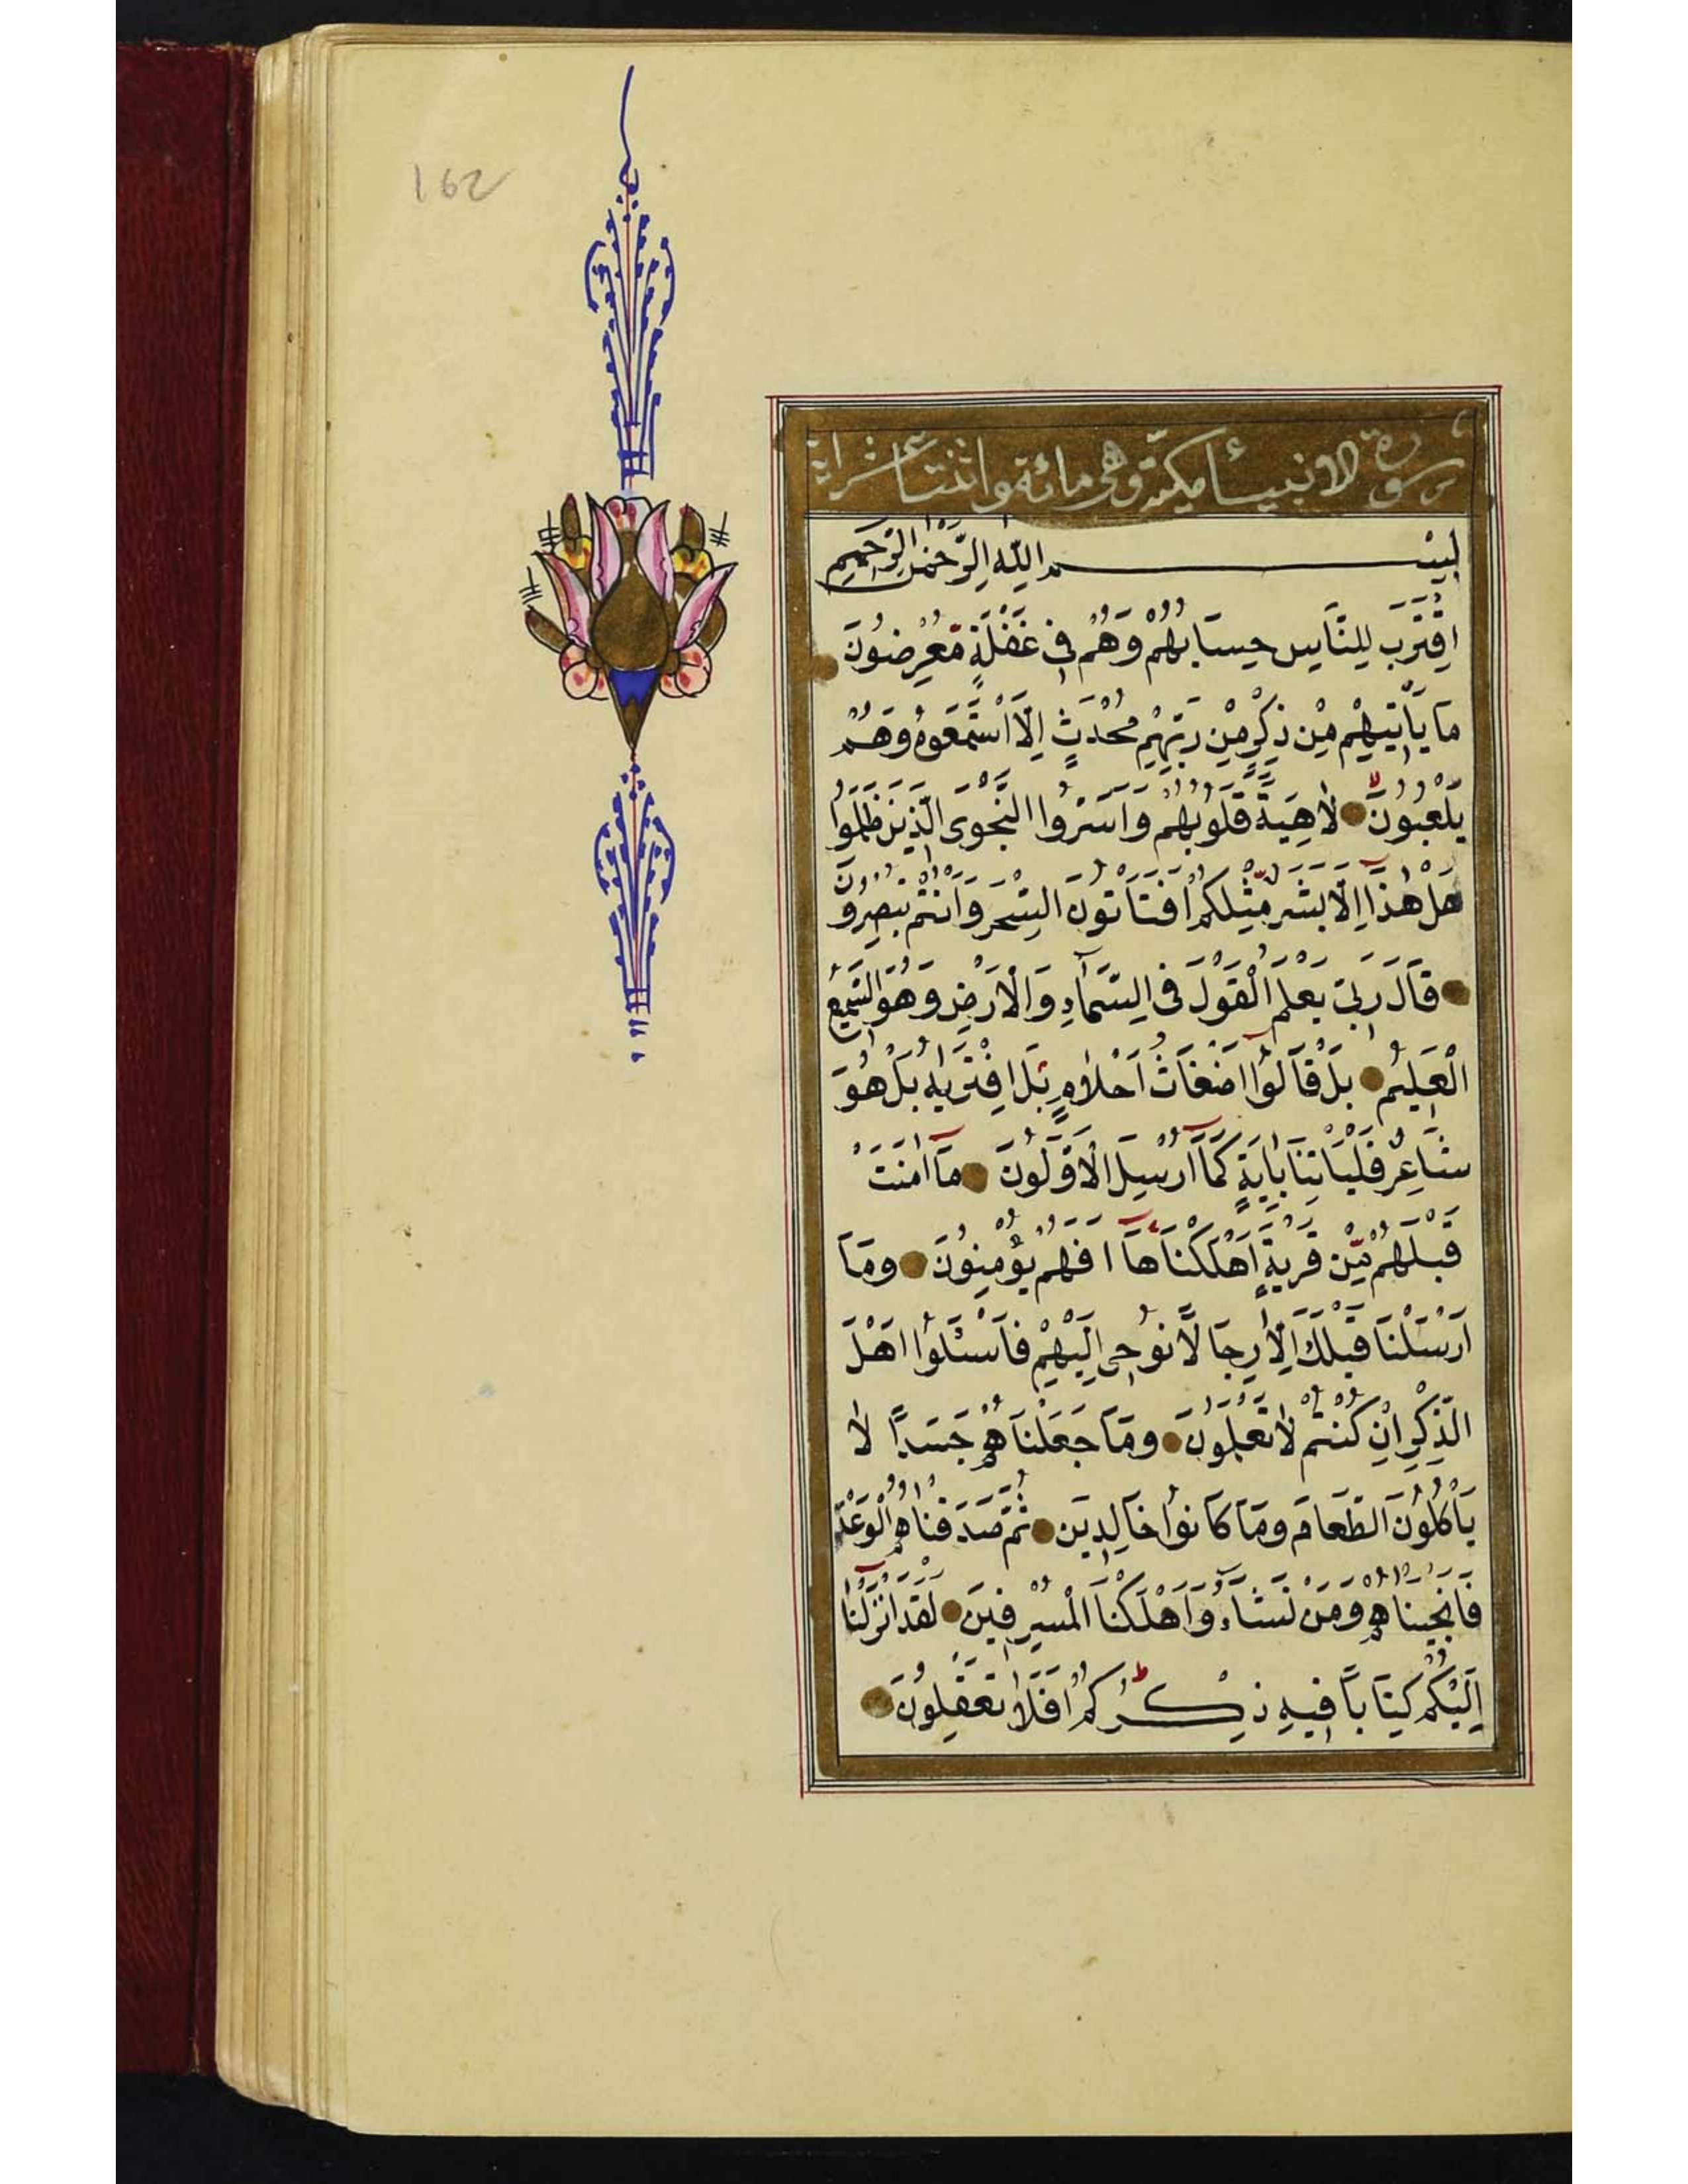 162
سورة الانبياء مكية وهى مائة واثنتا عشر اية
بِسْمِ اللّٰهِ الرَّحْمٰنِ الرَّحِيمِ
اِقْتَرَبَ لِلنَّاسِ حِسَابُهُمْ وَهُمْ فِى غَفْلَةٍ مُعْرِضُونَ
مَا يَأْتِيهِمْ مِنْ ذِكْرٍ مِنْ رَبِّهِمْ مُحْدَثٍ اِلَّا اسْتَمَعُوهُ وَهُمْ
يَلْعَبُونَ لَاهِيَةً قُلُوبُهُمْ وَاَسَرُّوا النَّجْوَى الَّذِينَ ظَلَمُوا
هَلْ هٰذَا اِلَّا بَشَرٌ مِثْلُكُمْ اَفَتَأْتُونَ السِّحْرَ وَاَنْتُمْ تُبْصِرُونَ
قَالَ رَبِّى يَعْلَمُ الْقَوْلَ فِى السَّمَاءِ وَالْاَرْضِ وَهُوَ السَّمِيعُ
الْعَلِيمُ بَلْ قَالُوا اَضْغَاثُ اَحْلَامٍ بَلِ افْتَرٰيهُ بَلْ هُوَ
شَاعِرٌ فَلْيَأْتِنَا بِاٰيَةٍ كَمَا اُرْسِلَ الْاَوَّلُونَ مَا اٰمَنَتْ
قَبْلَهُمْ مِنْ قَرْيَةٍ اَهْلَكْنَاهَا اَفَهُمْ يُؤْمِنُونَ وَمَا
اَرْسَلْنَا قَبْلَكَ اِلَّا رِجَالًا نُوحِى اِلَيْهِمْ فَاسْئَلُوا اَهْلَ
الذِّكْرِ اِنْ كُنْتُمْ لَا تَعْلَمُونَ وَمَا جَعَلْنَاهُمْ جَسَدًا لَا
يَأْكُلُونَ الطَّعَامَ وَمَا كَانُوا خَالِدِينَ ثُمَّ صَدَقْنَاهُمُ الْوَعْدَ
فَاَنْجَيْنَاهُمْ وَمَنْ نَشَاءُ وَاَهْلَكْنَا الْمُسْرِفِينَ لَقَدْ اَنْزَلْنَا
اِلَيْكُمْ كِتَابًا فِيهِ ذِكْرُكُمْ اَفَلَا تَعْقِلُونَ